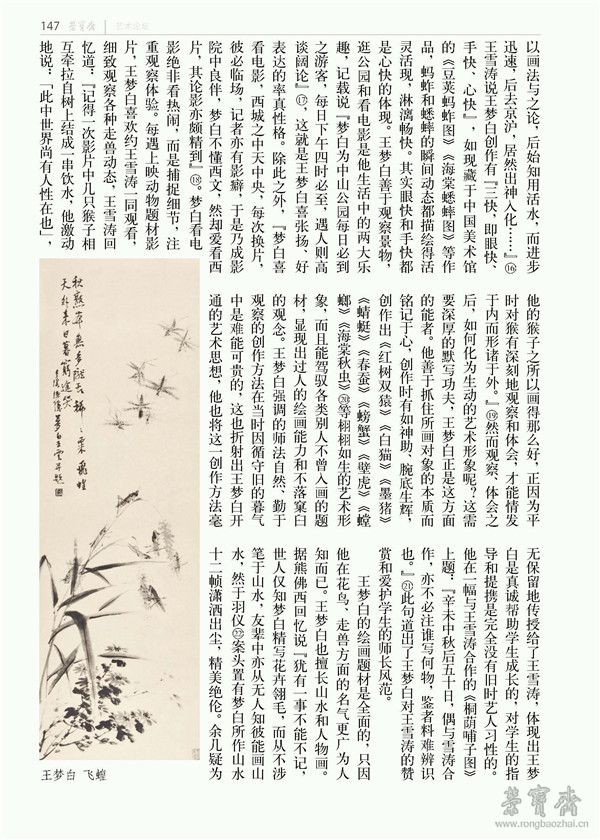 147 荣宝斋 艺术论坛
以画法与之论，后始知用活水，而进步
迅速，后去京沪，居然出神入化……』⑯
王雪涛说王梦白创作有『三快，即眼快、
手快、心快』，如现藏于中国美术馆
的《豆荚蚂蚱图》《海棠蟋蟀图》等作
品，蚂蚱和蟋蟀的瞬间动态都描绘得活
灵活现，淋漓畅快。其实眼快和手快都
是心快的体现。王梦白善于观察景物，
逛公园和看电影是他生活中的两大乐
趣，记载说『梦白为中山公园每日必到
之游客，每日下午四时必至，遇人则高
谈阔论』⑰，这就是王梦白喜张扬、好
表达的率真性格。除此之外，『梦白喜
看电影，西城之中天中央，每次换片，
彼必临场，记者亦有影癖，于是乃成影
院中良伴，梦白不懂西文，然却爱看西
片，其论影亦颇精到』⑱。梦白看电
影绝非看热闹，而是捕捉细节，注
重观察体验。每遇上映动物题材影
片，王梦白喜欢约王雪涛一同观看，
细致观察各种走兽动态，王雪涛回
忆道：『记得一次影片中几只猴子相
互牵拉自树上结成一串饮水，他激动
地说：「此中世界尚有人性在也」，
他的猴子之所以画得那么好，正因为平
时对猴有深刻地观察和体会，才能情发
于内而形诸于外。』⑲然而观察、体会之
后，如何化为生动的艺术形象呢？这需
要深厚的默写功夫，王梦白正是这方面
的能者。他善于抓住所画对象的本质而
铭记于心，创作时有如神助、腕底生辉，
创作出《红树双猿》《白猫》《墨猪》
《蜻蜓》《春蚕》《螃蟹》《壁虎》《螳
螂》《海棠秋虫》⑳等栩栩如生的艺术形
象，而且能驾驭各类别人不曾入画的题
材，显现出过人的绘画能力和不落窠臼
的观念。王梦白强调的师法自然、勤于
观察的创作方法在当时因循守旧的暮气
中是难能可贵的，这也折射出王梦白开
通的艺术思想，他也将这一创作方法毫
无保留地传授给了王雪涛，体现出王梦
白是真诚帮助学生成长的，对学生的指
导和提携是完全没有旧时艺人习性的。
他在一幅与王雪涛合作的《桐荫哺子图》
上题：『辛未中秋后五十日，偶与雪涛合
作，亦不必注谁写何物，鉴者料难辨识
也。』㉑此句道出了王梦白对王雪涛的赞
赏和爱护学生的师长风范。
王梦白的绘画题材是全面的，只因
他在花鸟、走兽方面的名气更广为人
知而已。王梦白也擅长山水和人物画。
据熊佛西回忆说『犹有一事不能不记，
世人仅知梦白精写花卉翎毛，而从不涉
笔于山水，友辈中亦从无人知彼能画山
水，然于羽仪㉒案头置有梦白所作山水
十二帧潇洒出尘，精美绝伦。余几疑为
王梦白 飞蝗
荣宝斋
www.rongbaozhai.cn